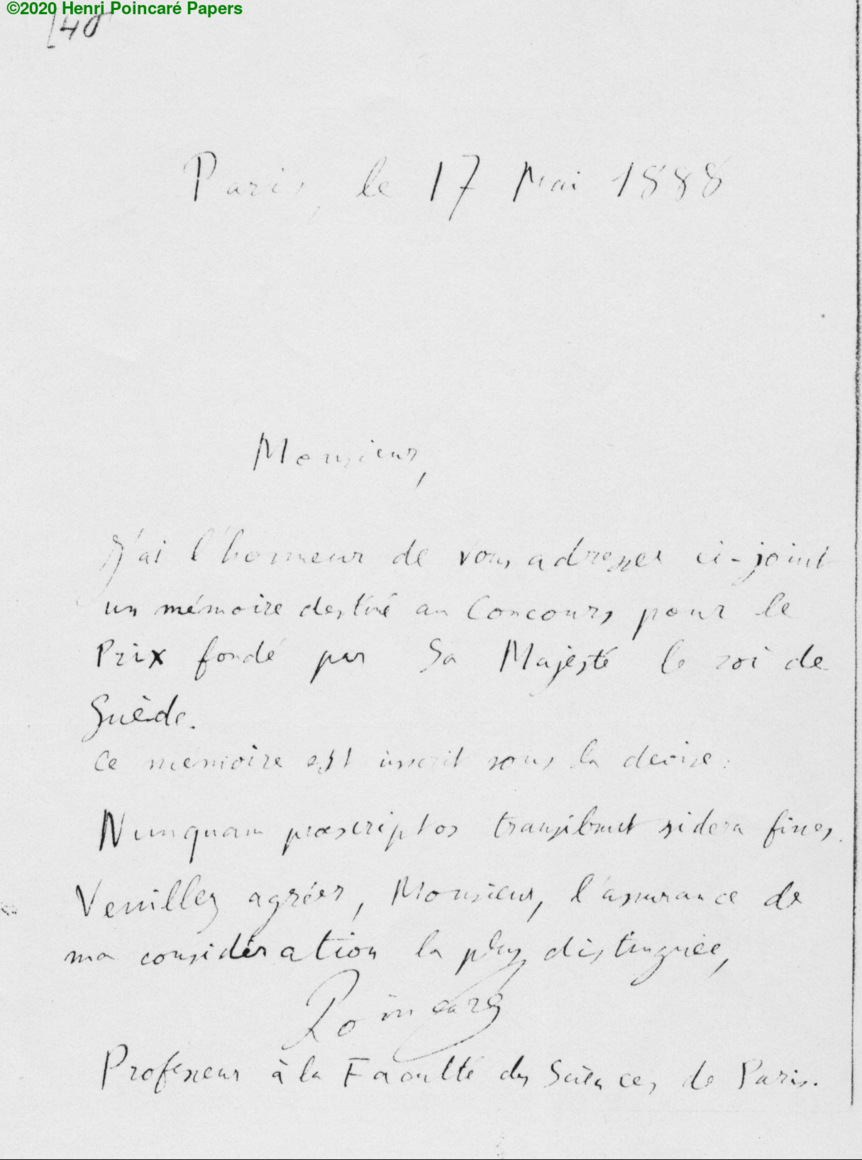 ©2020 Henri Poincaré Papers
[40
Paris, le 17 Mai 1888
Monsieur,
J'ai l'honneur de vous adresser ci-joint
un mémoire destiné au Concours pour le
Prix fondé par Sa Majesté le roi de
Suède.
Ce memoire est inscrit sous la devise:
Nunquam præscriptos transibunt sidera fines.
Veuillez agréer, Monsieur, l'assurance de
ma considération la plus distinguée,
Poincaré
Professeur à la Faculté des Sciences de Paris.